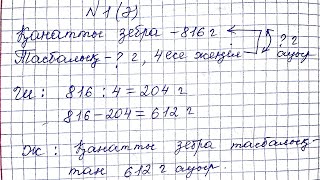 N 1 (2)
Қанатты зебра - 816 г
Тасбалық - ? г, 4 есе жеңіл ? г ауыр
Ш: 816 : 4 = 204 г
816 - 204 = 612 г
Ж: Қанатты зебра тасбалық-
тан 612 г ауыр.